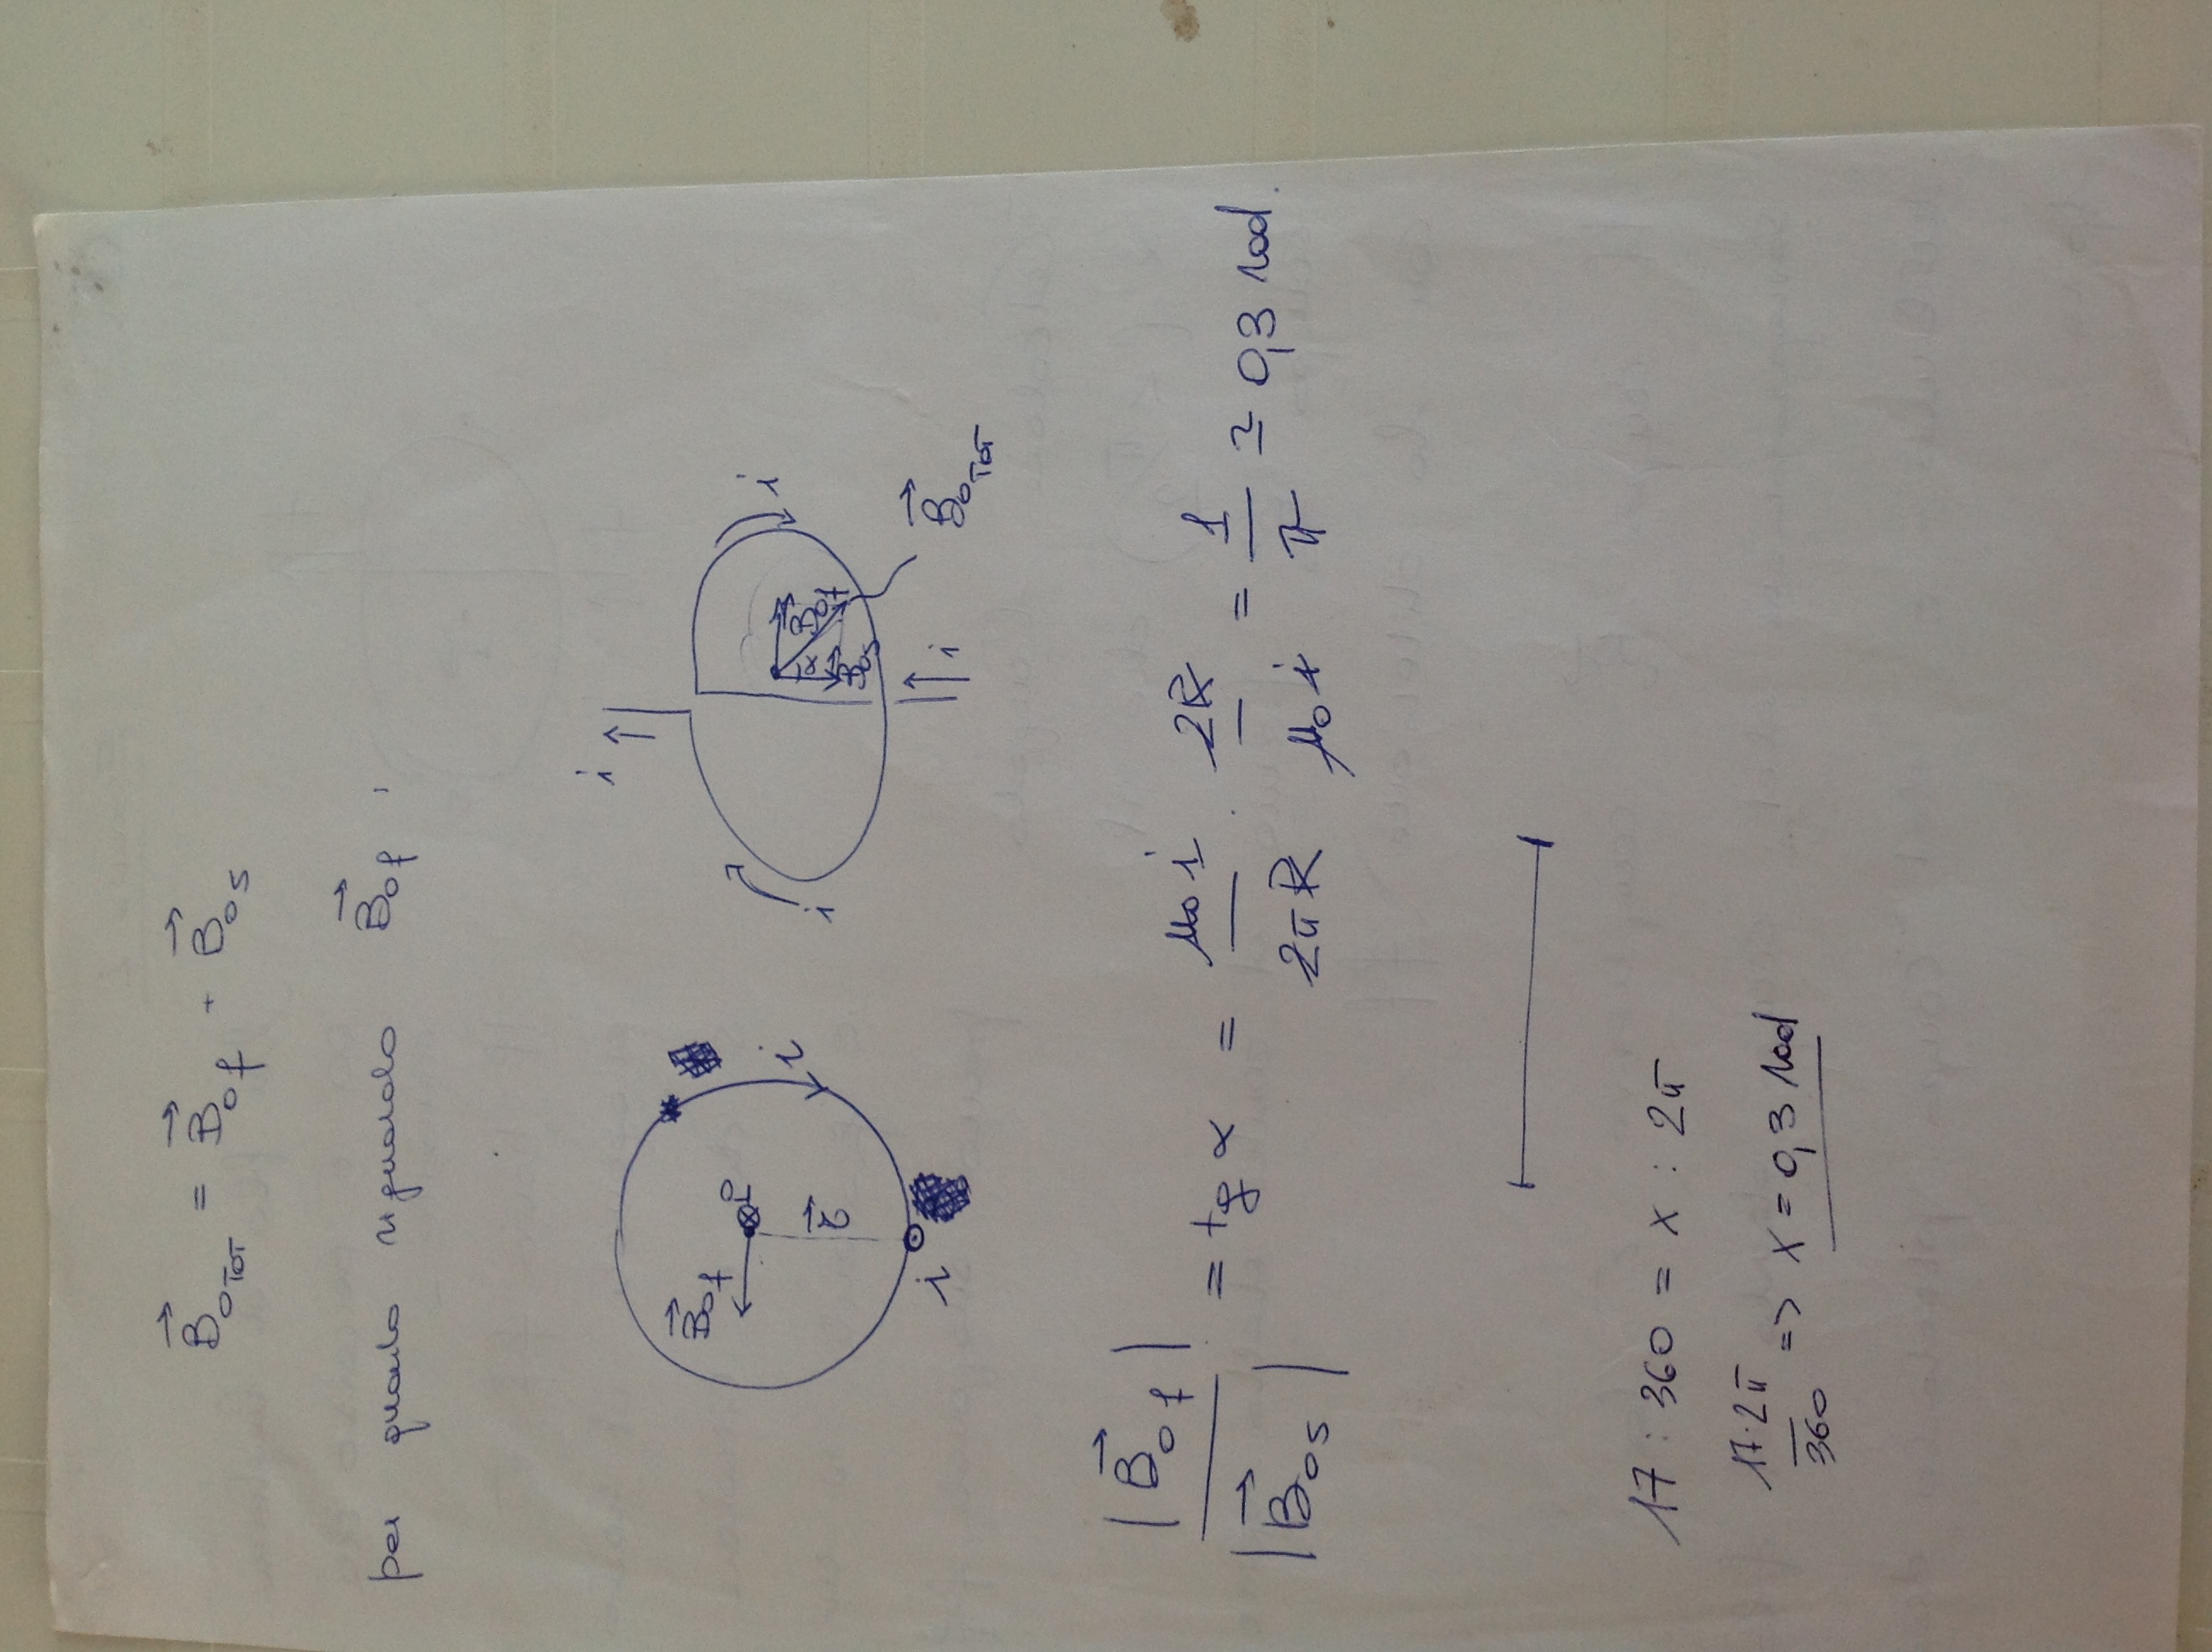 B₀TOT = B₀f + B₀s
per quanto riguarda B₀f :
i
B₀f
r
i
i
i
i
i
α
B₀f
B₀s
B₀TOT
|B₀f| / |B₀s| = tg α = μ₀i / 2πR · 2R / μ₀i = 1/π ≃ 0,3 rad.
17 : 360 = x : 2π
17·2π / 360 => x = 0,3 rad